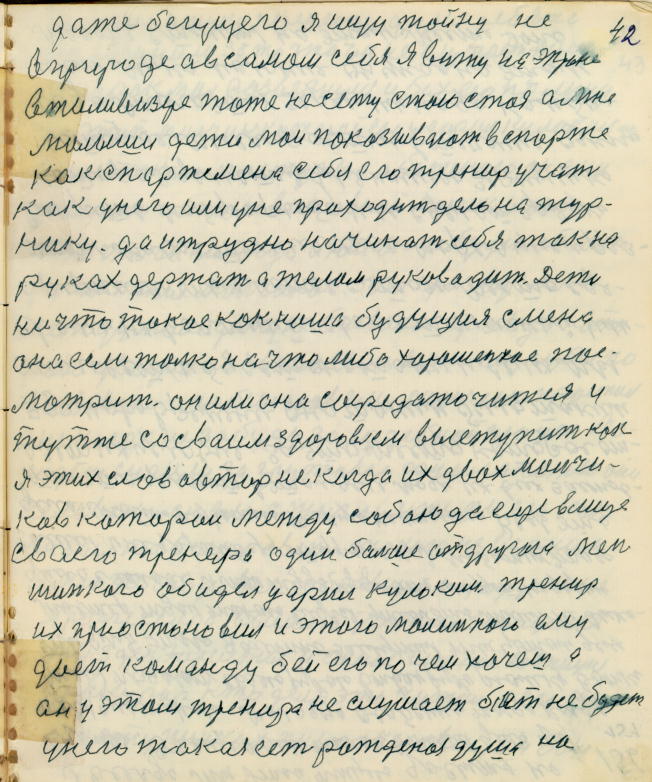 42
даже бегущего я ищу тойну не
в природе а всамом себя я вижу на экране
в тиливизере тоте не сету стою стоя а мне
малыши дети мои показывают в спорте
как спартсмена себя его тренир учат
как у него или у не проходит дело на тур-
нику. да и трудно начинат себя так на
руках держат а телом руководит. Дети
ничто такое как наша будущия смена
она если толко на что либо хорошенкое пос-
мотрит. он или она сосредаточится и
тут те со сваим здоровъем вылетупит как
я этих слов автор некогда их двох малчи-
ков катором между собою да еще влице
сваего тренера один балше от другога мен
шинкого обидел ударил кулоком тренир
их приостоновил и этого малинкого ему
дает команду бей его по чем хочеш а
он у этом тренира не слушает бит не будет
у него такая ест рожденая душа на